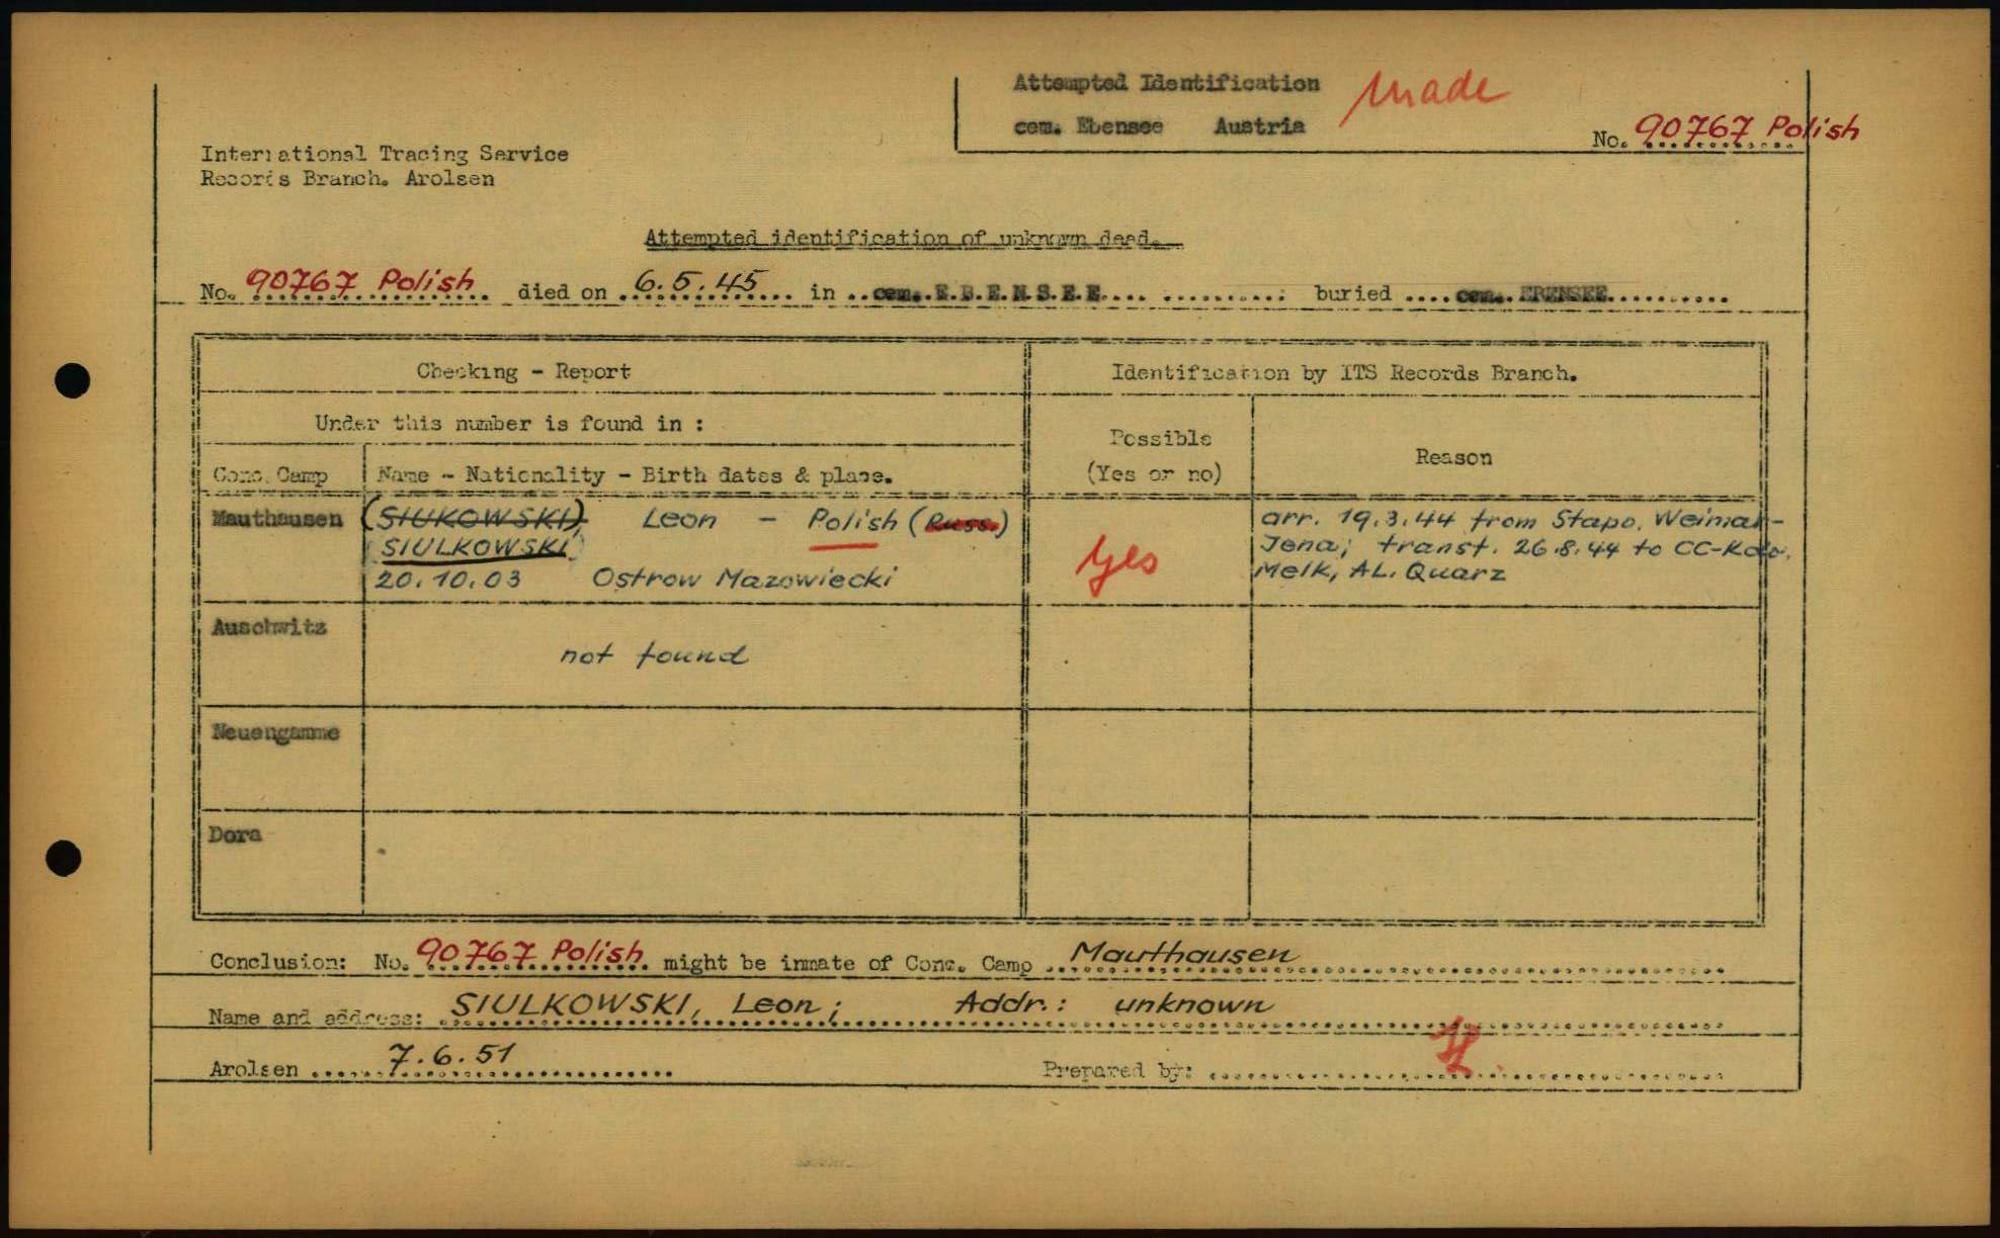 Attempted Identification made
cem. Ebensee Austria
No. 90767 Polish
International Tracing Service
Records Branch. Arolsen
Attempted identification of unknown dead.
No. 90767 Polish died on 6.5.45 in cem. E.B.E.N.S.E.E. buried cem. EBENSEE
Checking - Report
Identification by ITS Records Branch.
Under this number is found in :
Possible
(Yes or no)
Reason
Conc. Camp
Name - Nationality - Birth dates & place.
Mauthausen
(SIUKOWSKI) Leon - Polish (Russ.)
SIULKOWSKI
20.10.03 Ostrow Mazowiecki
Yes
arr. 19.3.44 from Stapo. Weimar-
Jena; transf. 26.8.44 to CC-Kdo.
Melk, AL. Quarz
Auschwitz
not found
Neuengamme
Dora
Conclusion: No. 90767 Polish might be inmate of Conc. Camp Mauthausen
Name and address: SIULKOWSKI, Leon; Addr.: unknown
Arolsen 7.6.51
Prepared by: